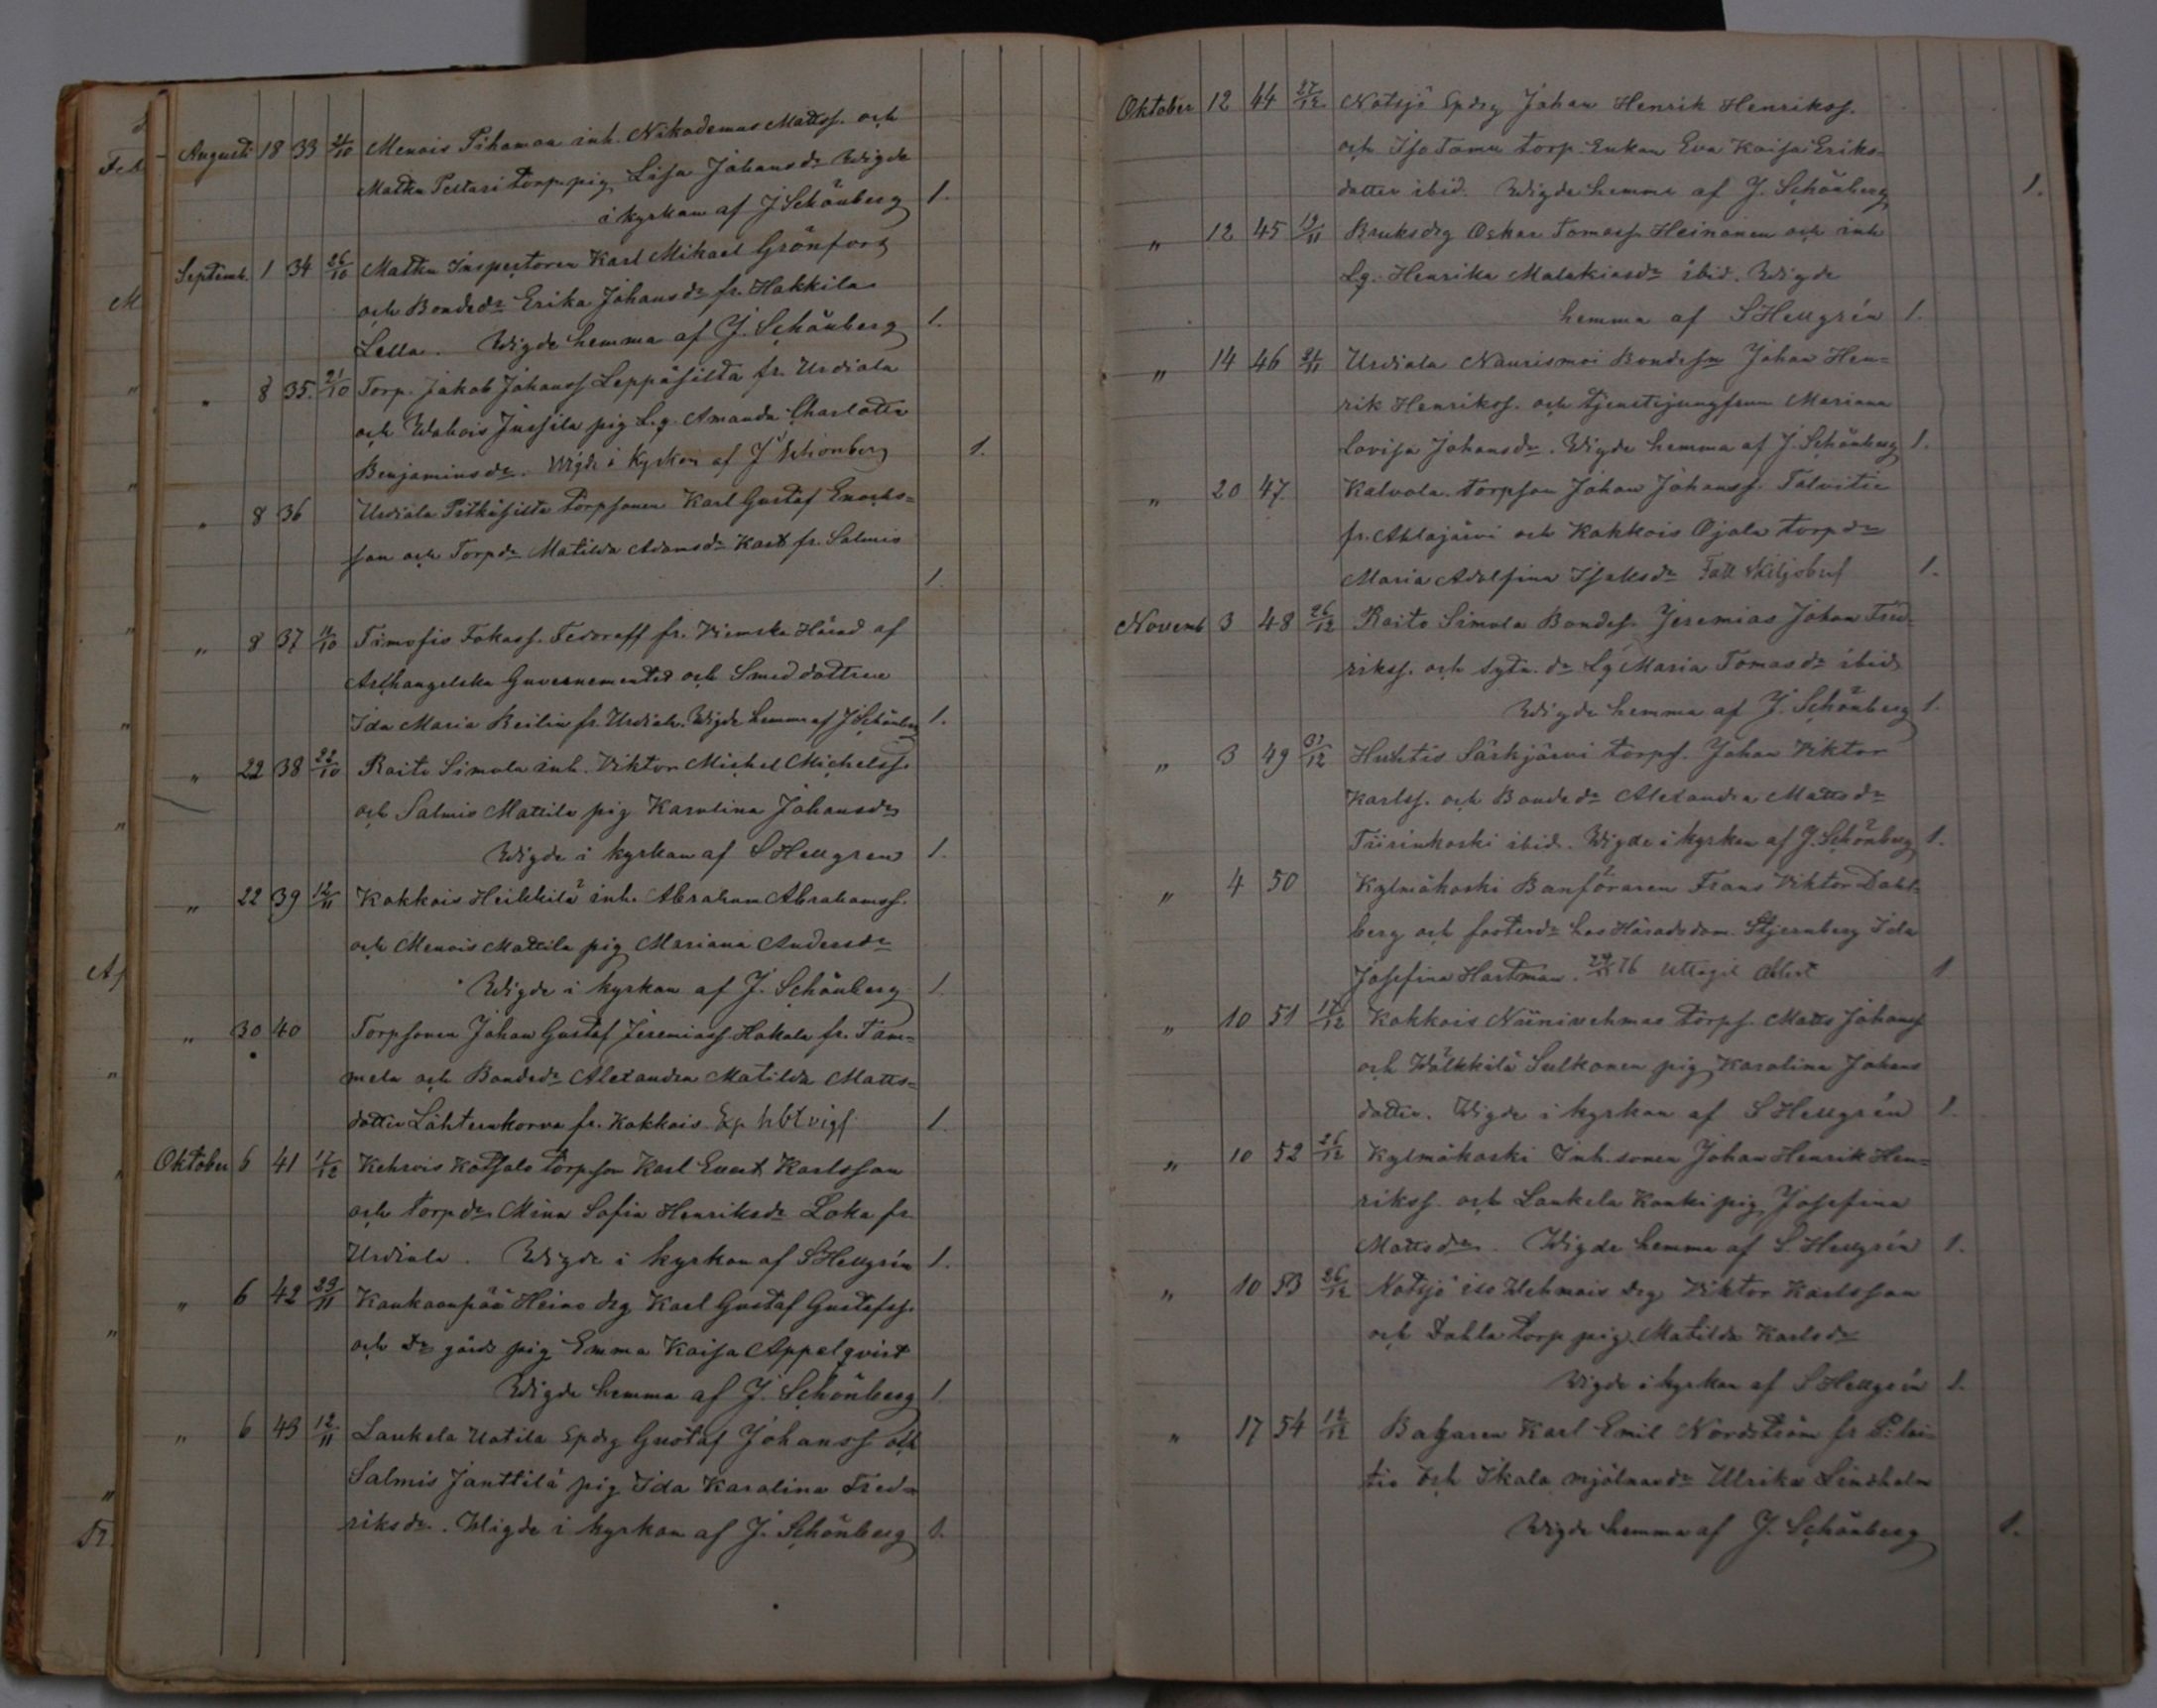 Augusti 18 33 21/10 Menois Pihamaa inh. Nikodemus Mattss. och
Matku Peltari torp. pig. Lisa Johansdr Wigde
i kyrkan af J Schönberg 1.
Septemb. 1 34 26/10 Matku Inspectoren Karl Mikael Grönfors
och Bondedr Erika Johansdr fr. Hakkila
Lella. Wigde hemma af J. Schönberg 1.
" 8 35. 21/10 Torp. Jakob Johanss Leppäsilta fr. Urdiala
och Wahois Jussila pig L.g. Amanda Charlotta
Benjaminsdr. Wigde i Kyrkan af J Schönberg 1.
" 8 36 Urdiala Pitkäsilta torpsonen Karl Gustaf Enochs=
son och Torpdr Matilda Adamsdr Kart fr. Salmis
1.
" 8 37 11/10 Timofis Fokass. Fedoraff fr. Kiemska Härad af
Archangelska Guvernementet och Smed dottren
Ida Maria Reilin fr. Urdiala. Wigde hemma af J Schönberg 1.
" 22 38 22/10 Raito Simola inh. Viktor Michel Michelss.
och Salmis Mattila pig Karolina Johansdr
Wigde i kyrkan af S Hellgren 1.
" 22 39 12/11 Kokkois Heikkilä inh. Abraham Abrahamss.
och Menois Mattila pig Mariana Andersdr
Wigde i kyrkan af J. Schönberg 1.
" 30 40 Torpsonen Johan Gustaf Jeremiass. Hakala fr. Tam=
mela och Bondedr Alexandra Matilda Matts=
dotter Lähteenkorva fr. Kokkois. 1.
Oktober 6 41 17/12 Kehrois Kotsalo torpson Karl Evert Karlsson
och torpdr Minna Sofia Henriksdr Loka fr.
Urdiala. Wigde i kyrkan af S Hellgrén 1.
" 6 42 29/11 Kankaanpää Heino drg Karl Gustaf Gustafss.
och dr gårds pig Emma Kaisa Appelqvist
Wigde hemma af J. Schönberg 1.
" 6 43 12/11 Laukela Uotila Spdrg Gustaf Johanss och
Salmis Janttilä pig Ida Karolina Fred=
riksdr. Wigde i kyrkan af J. Schönberg 1.
Oktober 12 44 27/12 Notsjö Spdrg Johan Henrik Henrikss.
och Iso Tamu torp. Enkan Eva Kaisa Eriks=
dotter ibid. Wigde hemma af J. Schönberg 1.
" 12 45 12/11 Bruksdrg Oskar Tomass. Heinonen och inh
Lg. Henrika Malakiasdr ibid. Wigde
hemma af S Hellgrén 1.
" 14 46 21/11 Urdiala Naurismoi Bondeson Johan Hen=
rik Henrikss. och tjenstejungfrun Mariana
Lovisa Johansdr. Wigde hemma af J. Schönberg 1.
" 20 47 Kalvola torpson Johan Johanss. Talvitie
fr. Ahlajärvi och Kokkois Ojala torpdr
Maria Adolfina Isaksdr 1.
Novemb 3 48 26/12 Raito Simola Bondes. Jeremias Johan Fred=
rikss. och Sytn. dr Lg Maria Tomasdr ibid
Wigde hemma af J. Schönberg 1.
" 3 49 31/12 Huhtis Särkjärvi torps. Johan Viktor
Karlss. och Bondedr Alexandra Mattsdr
Tiirinkoski ibid. Wigde i kyrkan af J. Schönberg 1.
" 4 50 Kylmäkoski Banföraren Frans Viktor Dahl=
berg och fosterdr hos Häradsdom. Stjernberg Ida
Josefina Hartman. 76 uttagit 1
" 10 51 17/12 Kokkois Niinivehmas torps. Matts Johanss
och Wälkkilä Sulkonen pig Karolina Johans
dotter. Wigde i kyrkan af S Hellgrén 1.
" 10 52 26/12 Kylmäkoski Inh. sonen Johan Henrik Hen=
rikss. och Laukela Kouki pig Josefina
Mattsdr. Wigde hemma af S. Hellgrén 1.
" 10 53 26/12 Notsjö iso Uchmais drg Viktor Karlsson
och Dahla torp pig. Matilda Karlsdr
Wigde i kyrkan af S Hellgrén 1.
" 17 54 12/12 Bagaren Karl Emil Nordström fr
tio och Ikala mjölnaredr Ulrika Lindholm
Wigde hemma af J. Schönberg 1.